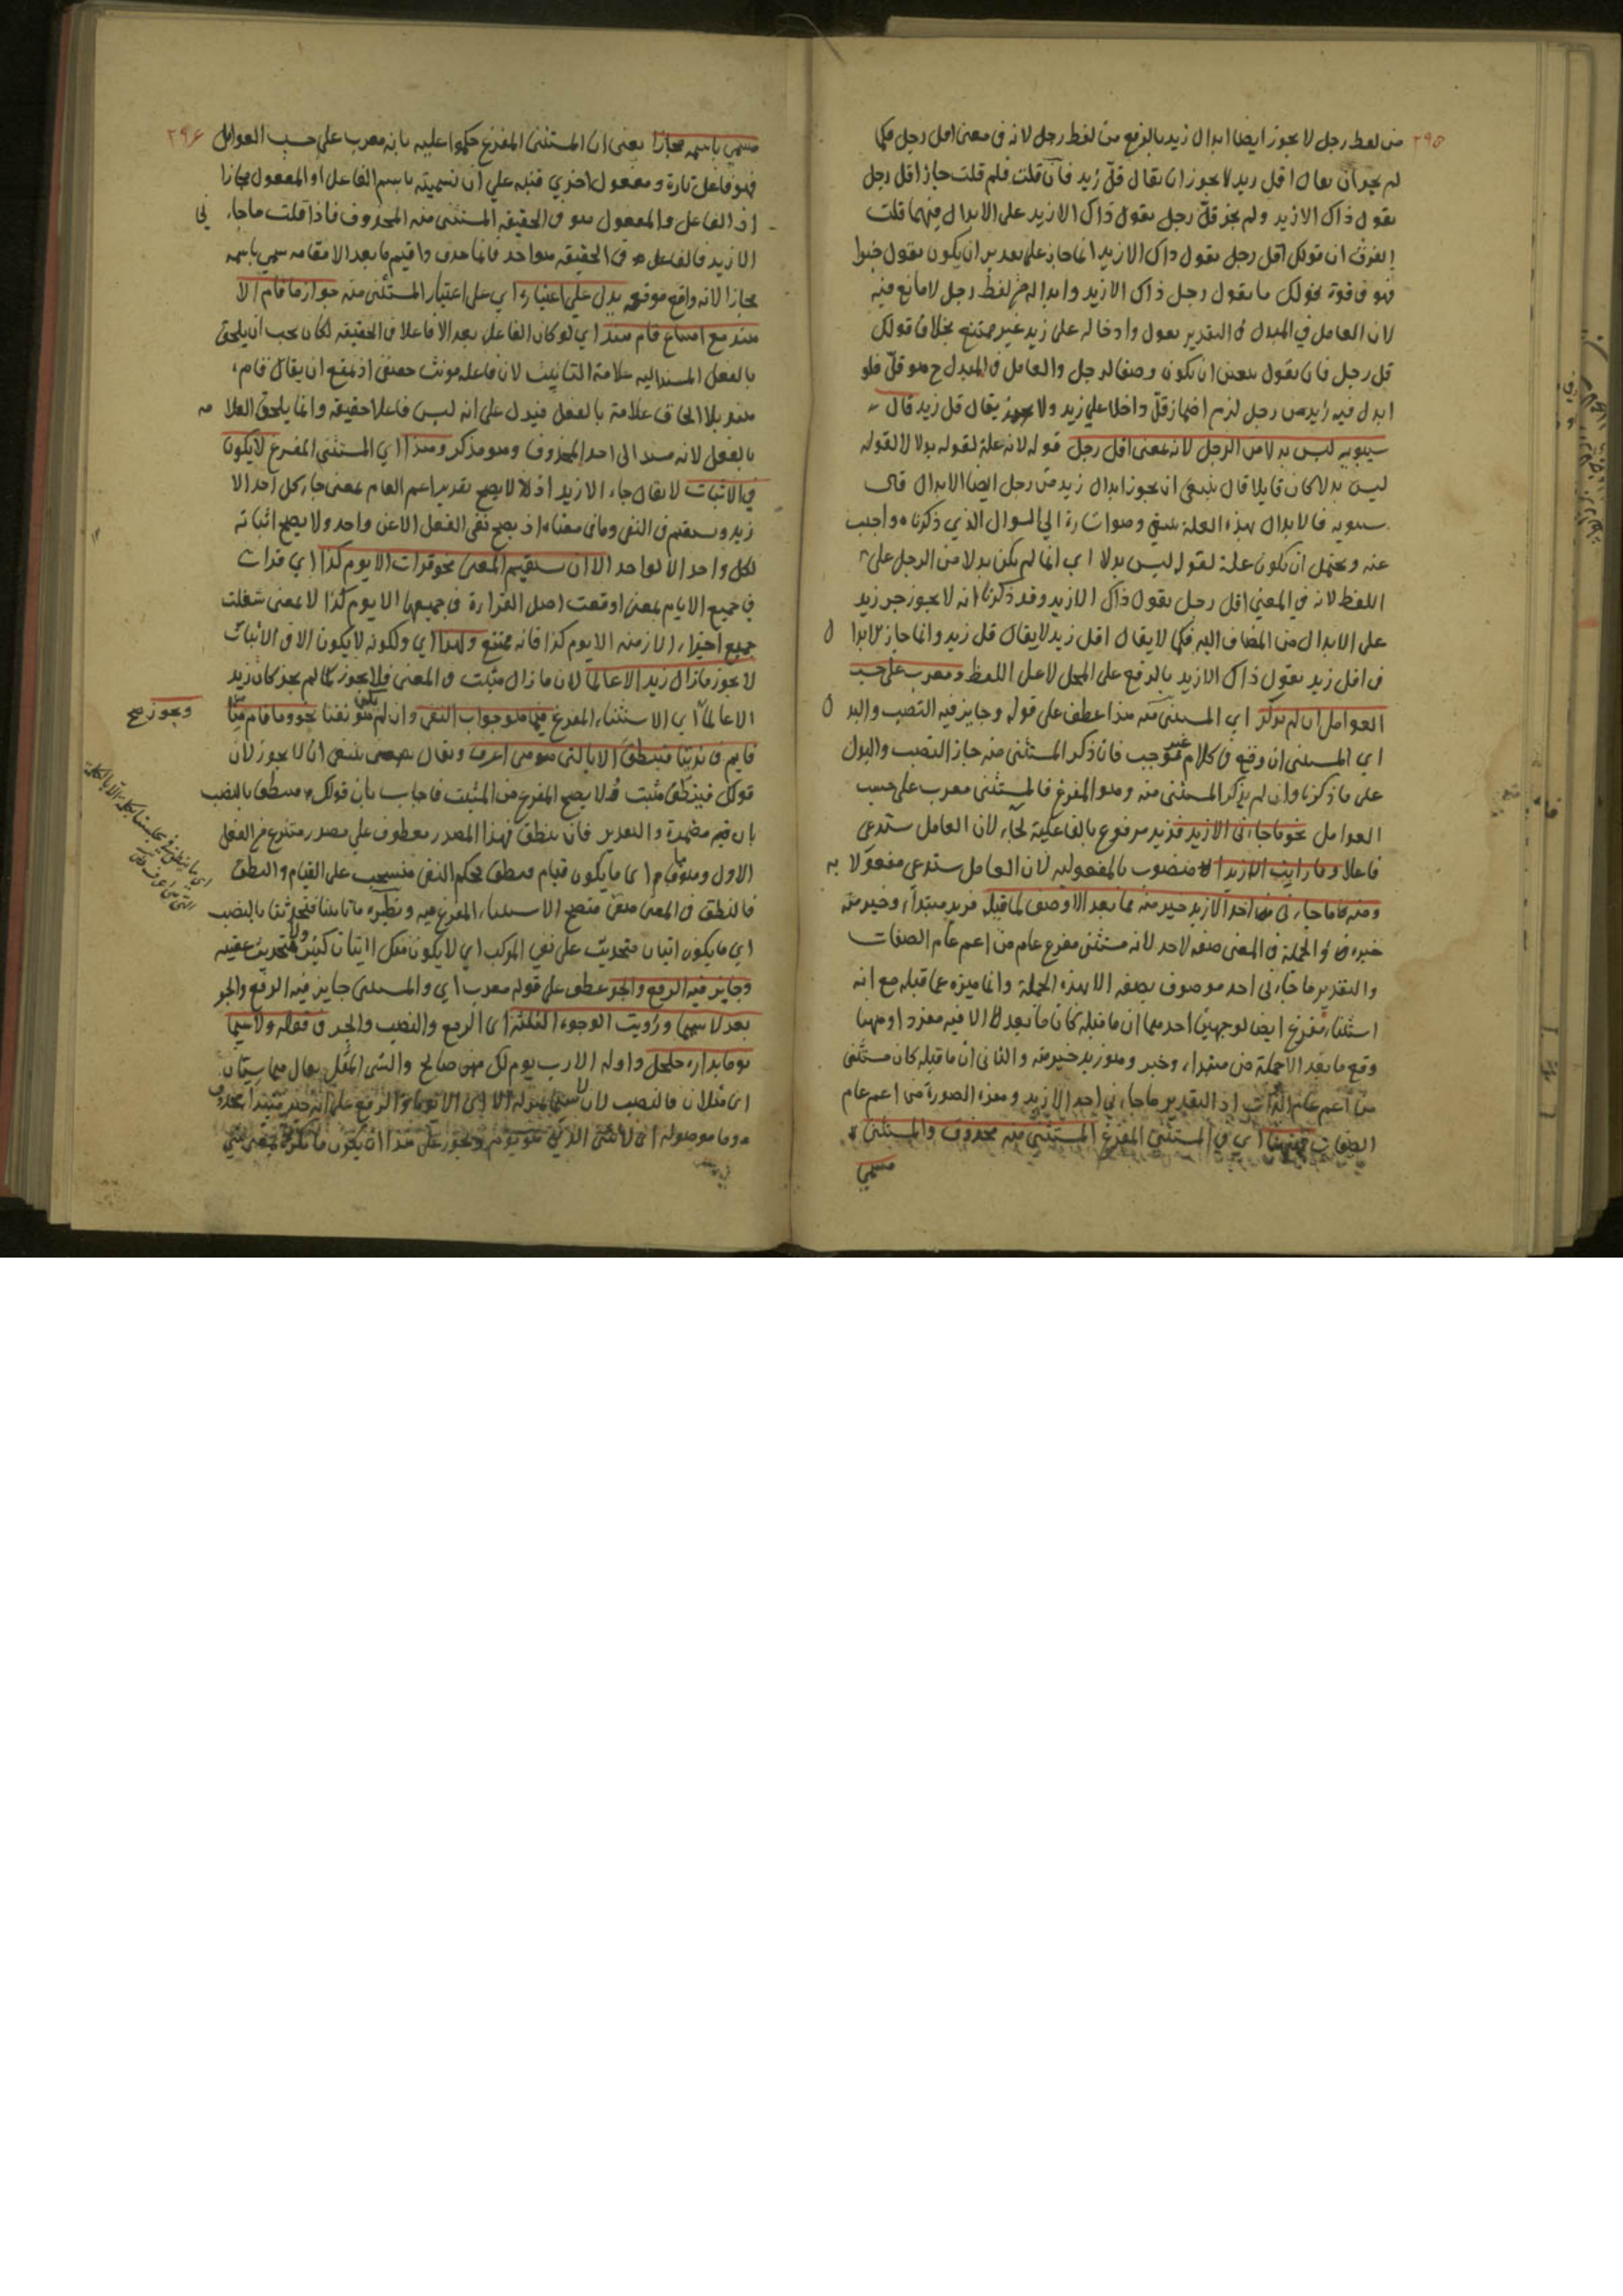 ٢٩٥
من لفظ رجل لا يجوز ايضا ابدال زيد بالرفع من لفظ رجل لانه فى معنى اقل رجل فكما
لم يجز ان يقال اقل زيد لا يجوز ان يقال قل زيد فان قلت فلم قلت جاز اقل رجل
يقول ذاك الا زيد ولم يجز قل رجل يقول ذاك الا زيد على الابدال فيهما قلت
الفرق ان قولك اقل رجل يقول ذاك الا زيد انما جاز على تقدير ان يكون يقول خبرا
فهو فى قوة قولك ما يقول رجل ذاك الا زيد وابداله من لفظ رجل لا مانع فيه
لان العامل في المبدل فى التقدير يقول وادخاله على زيد غير ممتنع بخلاف قولك
قل رجل فان يقول يتعين ان يكون وصفا لرجل والعامل فى المبدل ح هو قل فلو
ابدل فيه زيد من رجل لزم اضمار قل داخلا على زيد ولا يقال قل زيد قال
سيبويه ليس بدلا من الرجل لانه بمعنى اقل رجل قوله لانه علة لقوله بدلا لا لقوله
ليس بدلا كان قايلا قال ينبغى ان يجوز ابدال زيد من رجل ايضا الابدال قال
سيبويه فالابدال بهذه العلة ينتفي وهو اشارة الى السوال الذي ذكرناه واجيب
عنه ويحتمل ان يكون علة لقوله ليس بدلا اي انما لم يكن بدلا من الرجل على
اللفظ لانه في المعنى اقل رجل يقول ذاك الا زيد وقد ذكرنا انه لا يجوز جر زيد
على الابدال من المضاف اليه فكما لا يقال اقل زيد لا يقال قل زيد وانما جاز الابدال
فى اقل زيد يقول ذاك الا زيد بالرفع على المحل لا على اللفظ ومعرب على حسب
العوامل ان لم يذكر اي المستثنى منه هذا عطف على قوله وجايز فيه النصب والبدل
اي المستثنى ان وقع فى كلام غير موجب فان ذكر المستثنى منه جاز النصب والبدل
على ما ذكرنا وان لم يذكر المستثنى منه وهو المفرغ فالمستثنى معرب على حسب
العوامل نحو ما جاءنى الا زيد فزيد مرفوع بالفاعلية لجاء لان العامل يستدعى
فاعلا وما رايت الا زيدا منصوب بالمفعولية لان العامل يستدعى مفعولا به
ومنه ما جاءنى احد الا زيد خير منه فما بعد الا وصف لما قبله فزيد مبتداء وخير منه
خبره والجملة فى المعنى صفة لاحد لانه مستثنى مفرغ عام من اعم عام الصفات
والتقدير ما جاءنى احد موصوف بصفة الا بهذه الجملة وانما ميزه عما قبله مع انه
استثناء مفرغ ايضا لوجهين احدهما ان ما قبله كان ما بعد الا فيه مفردا وههنا
وقع ما بعد الا جملة من مبتداء وخبر وهو زيد خير منه والثانى ان ما قبله كان مستثنى
من اعم عام الذات اذ التقدير ما جاءنى احد الا زيد وهذه الصورة من اعم عام
الصفات فيهما اي في المستثنى المفرغ المستثنى منه محذوف والمستثنى
مسمي
٢٩٦
مسمي باسمه مجازا يعنى ان المستثنى المفرغ حكموا عليه بانه معرب على حسب العوامل
فهو فاعل تارة ومفعول اخري فنبه علي ان تسميته باسم الفاعل او المفعول مجازا
اذ الفاعل والمفعول هو فى الحقيقة المستثنى منه المحذوف فاذا قلت ما جاءني
الا زيد فالفاعل فى الحقيقة هو احد فلما حذف واقيم ما بعد الا مقامه سمي باسمه
مجازا لانه واقع موقعه يدل على اعتباره اي على اعتبار المستثنى منه جواز ما قام الا
هند مع امتناع قام هند اي لو كان الفاعل بعد الا فاعلا فى الحقيقة لكان يجب ان يلحق
بالفعل المسند اليه علامة التانيث لان فاعله مونث حقيقى اذ يمتنع ان يقال قام
هند بلا الحاق علامة بالفعل فيدل على انه ليس فاعلا حقيقة وانما يلحق العلامة
بالفعل لانه مسند الى احد المحذوف وهو مذكر وهذا اي المستثنى المفرغ لا يكون
في الاثبات لا يقال جاء الا زيد اذ لا يصح تقدير اعم العام بمعنى جاء كل احد الا
زيد ويستقيم فى النفى وما فى معناه اذ يصح نفى الفعل الا عن واحد ولا يصح اثباته
لكل واحد الا لواحد الا ان يستقيم المعنى نحو قرات الا يوم كذا اي قرات
في جميع الايام بمعنى اوقعت اصل القراءة فى جميعها الا يوم كذا لا بمعنى شغلت
جميع اجزاء الازمنة الا يوم كذا فانه ممتنع ولهذا اي ولكونه لا يكون الا فى الاثبات
لا يجوز ما زال زيد الا عالما لان ما زال مثبت فى المعنى فلا يجوز كما لم يجز كان زيد
الا عالما اي الاستثناء المفرغ فيما هو جواب النفى وان لم يكن هو نفيا نحو وما قام منا
ويجوز صح
قايم فى ندينا فينطق الا بالتى هى اعرف
قولك فينطق مثبت ولا يصح المفرغ من المثبت فاجاب بان قولك فينطق بالنصب
بان فيه مضمرة والتقدير فان ينطق فهذا المصدر معطوف علي مصدر منتزع من الفعل
الاول وهو قام اى ما يكون قيام فنطق بحكم النفى منسحب على القيام والنطق
فالنطق فى المعنى منفى فيصح الاستثناء المفرغ فيه ونظيره ما تاتينا فتحدثنا بالنصب
اي ما يكون اتيان فتحديث على نفي المركب اي لا يكون منكل اتيان كثير ولا تحديث عقيبه
وجايز فيه الرفع والجر عطف على قوله معرب اي والمستثنى جايز فيه الرفع والجر
بعد لا سيما ورويت الوجوه الثلثة اى الرفع والنصب والجر فى قوله ولا سيما
يوما بدارة جلجل واوله الا رب يوم لك منهن صالح والسى المثل يقال هما سيان
اى مثلان فالنصب لان لا سيما بمنزلة الا اى الا يوما والرفع على انه خبر مبتدا محذوف
وما موصولة اى لا مثل الذي هو يوم ويجوز على هذا ان يكون ما نكرة بمعنى شي